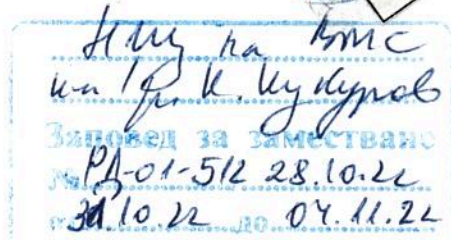 НЩ на ВМС
К. Кукуров
Заповед за заместване
№ РД-01-512 28.10.22
от 31.10.22 до 04.11.22